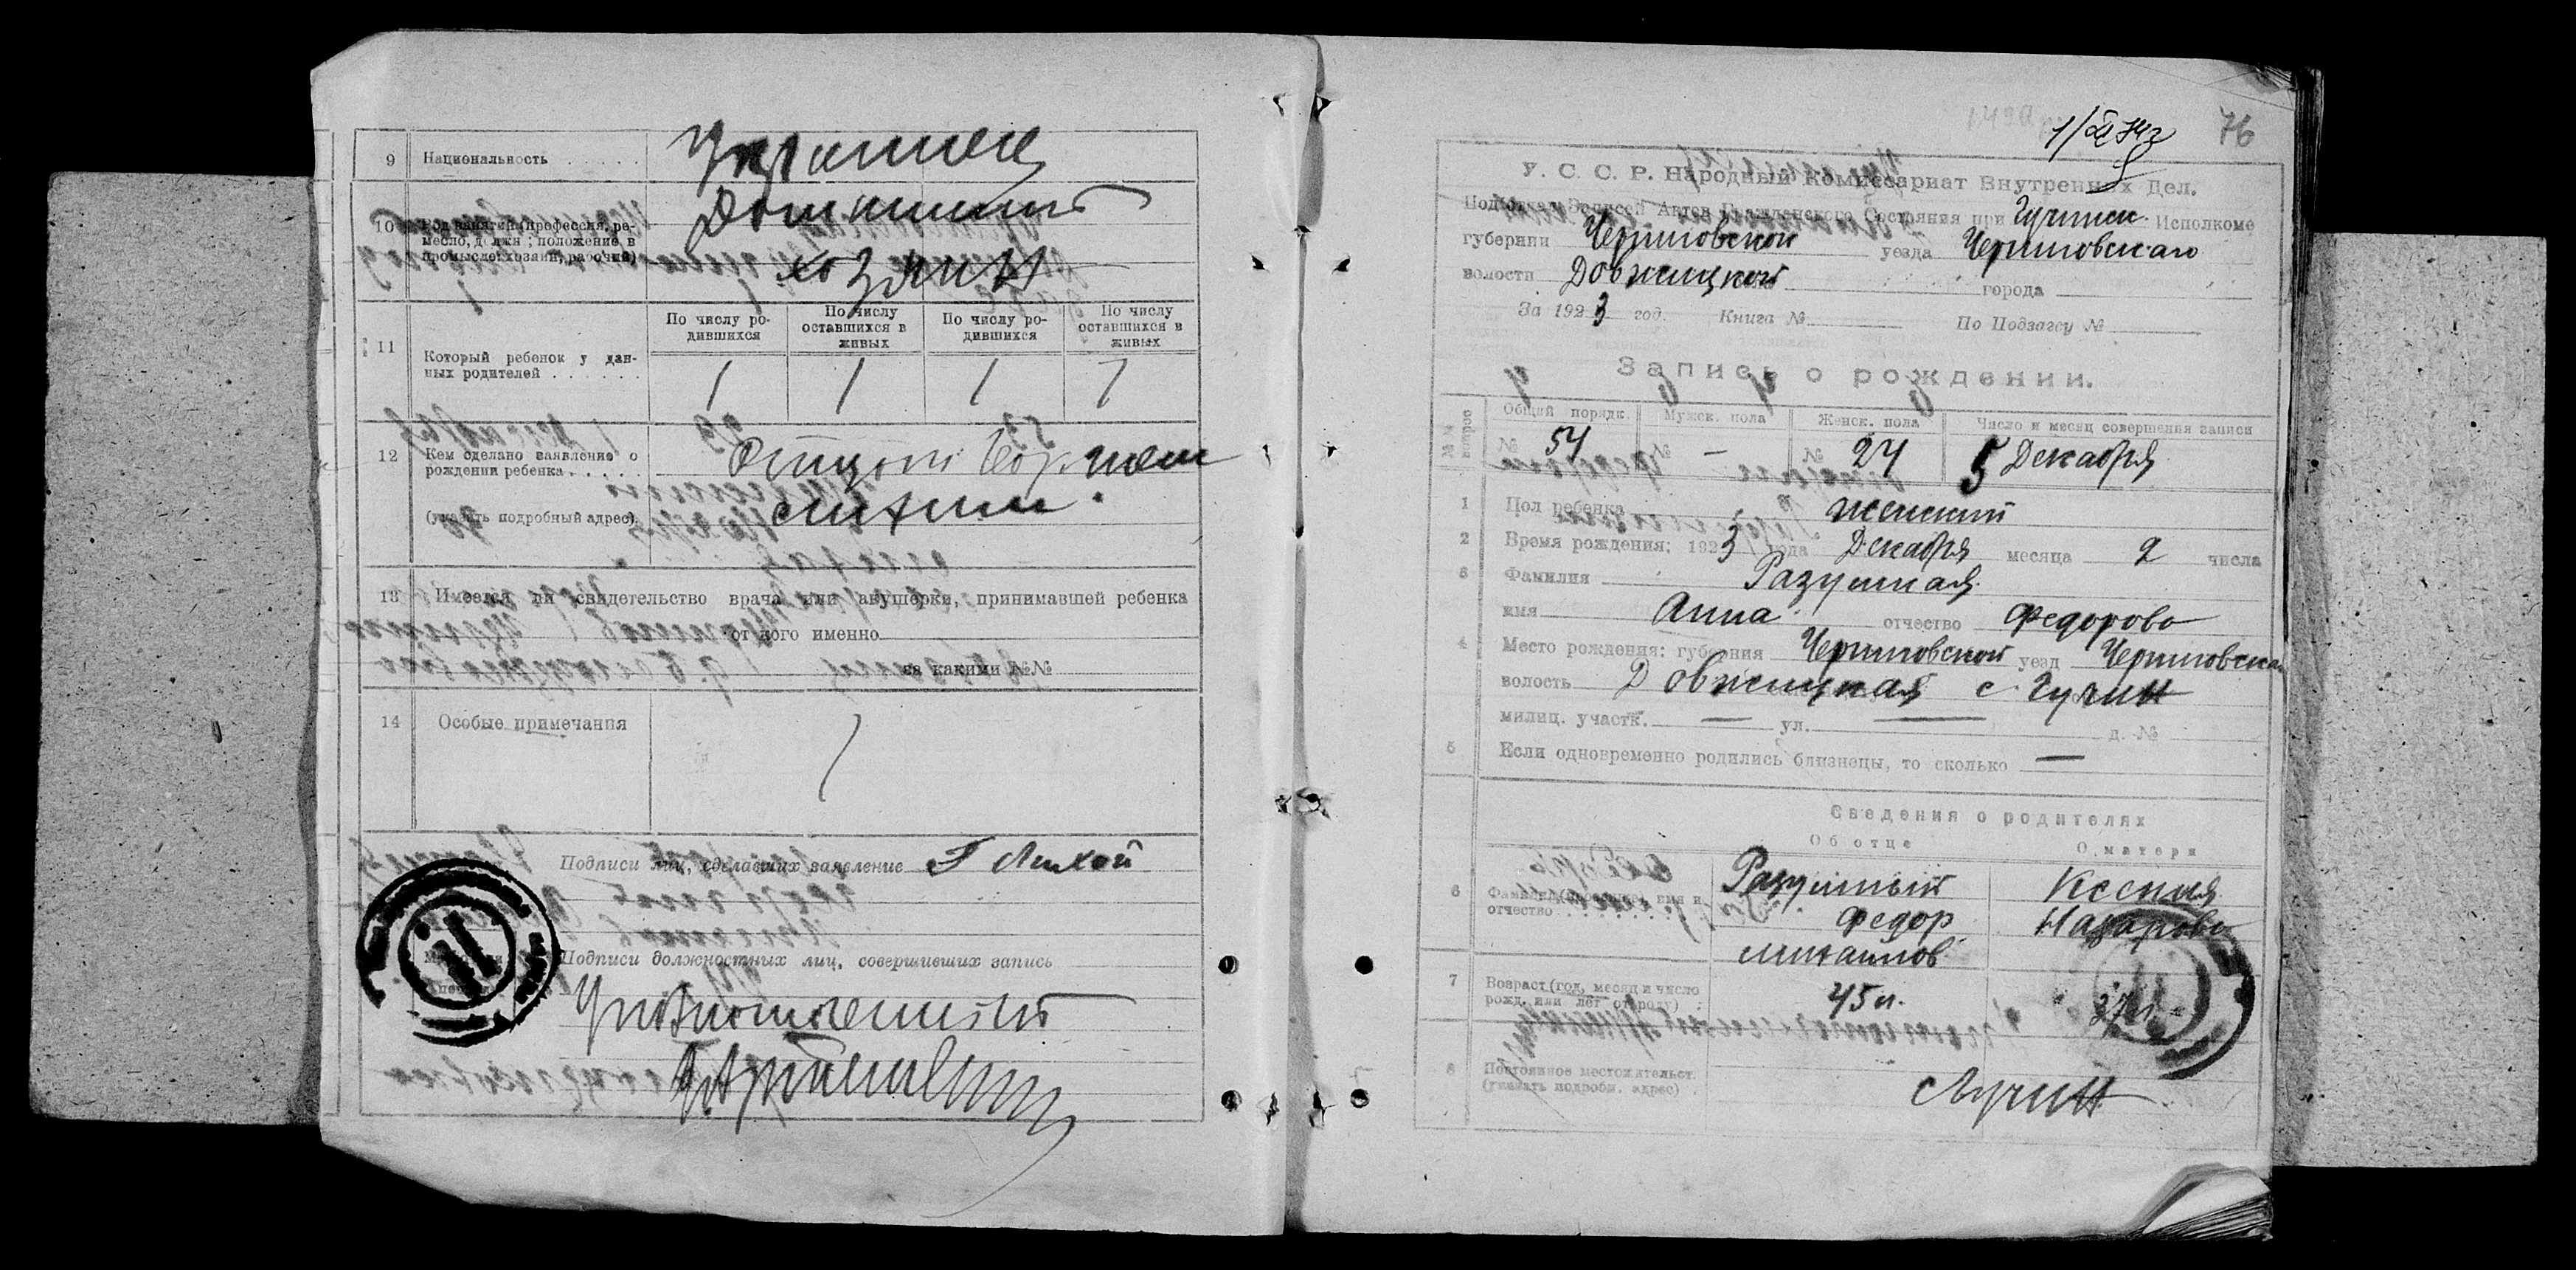 9 Национальность
Украинец
10 Род занятий (профессия, ре-
месло, должн; положение в
промысле: хозяин, рабочий)
Домашний
хозяин
11 Который ребенок у дан-
ных родителей
По числу ро-
дившихся
По числу
оставшихся в
живых
По числу ро-
дившихся
По числу
оставшихся в
живых
1 1 1 1
12 Кем сделано заявление о
рождении ребенка
(указать подробный адрес).
Отцом
13 Имеется ли свидетельство врача или акушерки, принимавшей ребенка
от кого именно
за какими №№
14 Особые примечания
Подписи лиц, сделавших заявление Г Лихой
Подписи должностных лиц, совершивших запись
Уполномоченный
76
У. С. С. Р. Народный Комиссариат Внутренних Дел.
Подотдел Записей Актов Гражданского Состояния при Гучинск. Исполкоме
губернии Черниговской уезда Черниговскаго
волости Довжицкой города
За 1923 год. Книга № По Подзагсу №
Запись о рождении.
№№ вопрос
Общий порядк. Мужск. пола Женск. пола Число и месяц совершения записи
№ 54 № – № 24 5 Декабря
1 Пол ребенка женский
2 Время рождения: 1923 года Декабря месяца 2 числа
3 Фамилия Разумная
имя Анна отчество Федорово
4 Место рождения: губерния Черниговской уезд Черниговска
волость Довжицкая с Гучин
милиц. участк. — ул. — д. №
5 Если одновременно родились близнецы, то сколько —
Сведения о родителях
Об отце О матери
6 Фамилия (прозвище), имя и
отчество
Разумный
Федор
михайлов
Ксения
Назарово
7 Возраст (год, месяц и число
рожд. или лет от роду)
45 л. 37 л.
8 Постоянное местожительст.
(указать подробн. адрес)
с Гучин